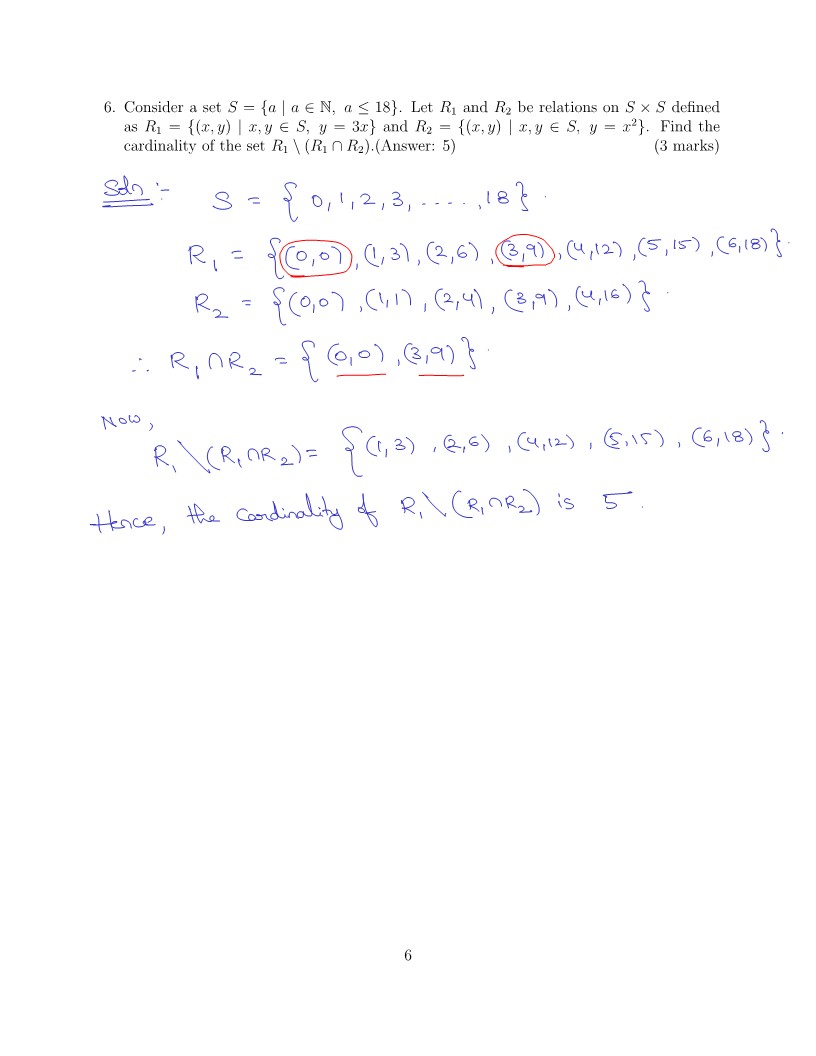 6. Consider a set S = {a | a ∈ ℕ, a ≤ 18}. Let R₁ and R₂ be relations on S × S defined
as R₁ = {(x, y) | x, y ∈ S, y = 3x} and R₂ = {(x, y) | x, y ∈ S, y = x²}. Find the
cardinality of the set R₁ \ (R₁ ∩ R₂).(Answer: 5) (3 marks)
Soln :-
S = { 0, 1, 2, 3, ....., 18 } .
R₁ = { (0,0), (1,3), (2,6), (3,9), (4,12), (5,15), (6,18) } .
R₂ = { (0,0), (1,1), (2,4), (3,9), (4,16) } .
∴ R₁ ∩ R₂ = { (0,0), (3,9) } .
Now,
R₁ \ (R₁ ∩ R₂) = { (1,3), (2,6), (4,12), (5,15), (6,18) } .
Hence, the cardinality of R₁ \ (R₁ ∩ R₂) is 5 .
6